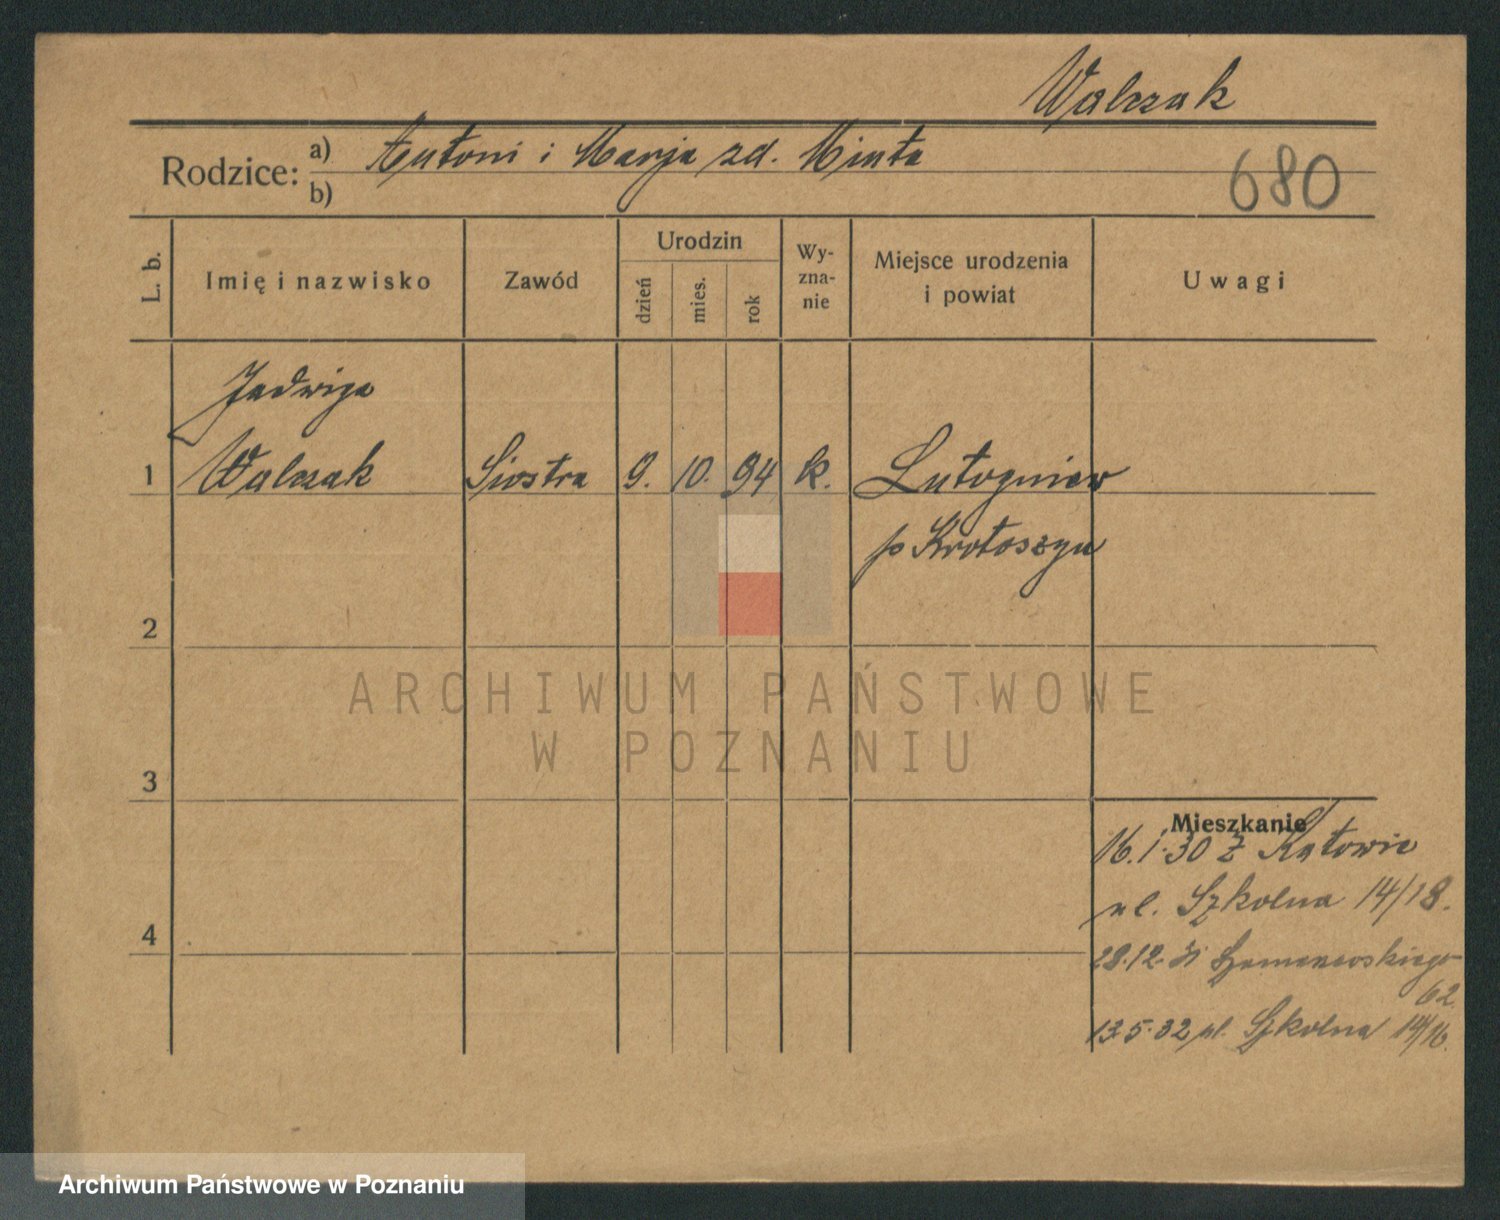 Walczak
Rodzice: a) Antoni i Marja zd. Minta
b)
680
L. b.
Imię i nazwisko
Zawód
Urodzin
dzień
mies.
rok
Wy-
zna-
nie
Miejsce urodzenia
i powiat
Uwagi
Jadwiga
1 Walczak Siostra 9. 10. 94 k. Lutogniew
p Krotoszyn
2
ARCHIWUM PAŃSTWOWE
W POZNANIU
3
Mieszkanie
16.1.30 z Katowic
ul. Szkolna 14/18.
4
28.12.31
62
13.5.32 ul. Szkolna 14/16.
Archiwum Państwowe w Poznaniu